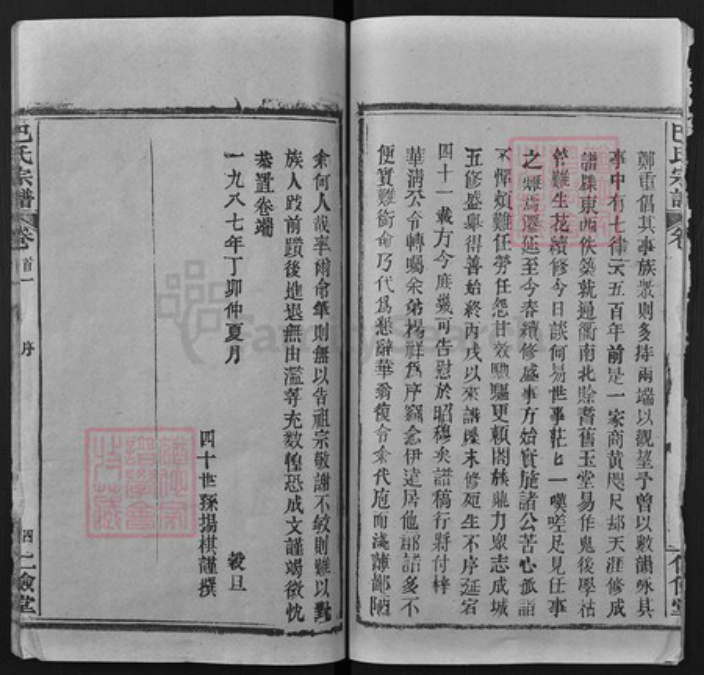 鄭重倡其事族眾則多持兩端以觀望予曾以數韻咏其
事中有七律云五百年前是一家商黃咫尺却天涯修成
譜牒東西佚築就通衢南北賒耆舊玉堂易作鬼後學枯
管難生花續修今日談何易世事茫匕一嘆嗟足見任事
之難焉遷延至今春續修盛事方始實施諸公苦心孤詣
不憚煩難任勞任怨甘效馳驅更賴閤族鼎力眾志成城
五修盛舉得善始終丙戌以來譜牒末修苑生不序延宕
四十一載方今庶幾可告慰於昭穆矣譜稿行將付梓
華清公令轉囑余弟楊祥為序竊念伊遠居他郡諸多不
便實難銜命乃代為懇辭華翁復令余代庖而淺薄鄙陋
余何人哉率爾命筆則無以告祖宗敬謝不敏則難以對
族人跋前躓後進退無由濫竽充數惶恐成文謹竭微忱
恭置卷端
一九八七年丁卯仲夏月 穀旦
四十世孫揚棋謹撰
巴氏宗譜 卷首一 序 四 仁儉堂
巴氏宗譜 卷
FamilySearch